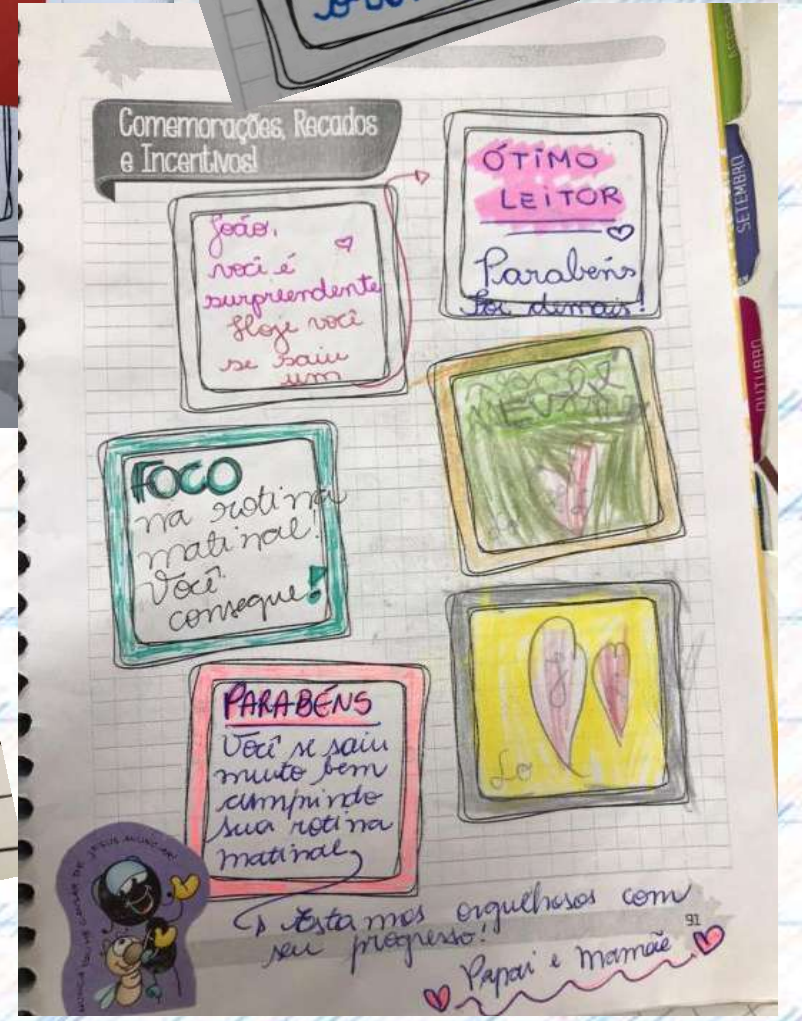 Comemorações, Recados
e Incentivos!
João,
você é
surpreendente
Hoje você
se saiu
um
ÓTIMO
LEITOR
Parabéns
foi demais!
FOCO
na rotina
matinal!
Você
consegue!
PARABÉNS
Você se saiu
muito bem
cumprindo
sua rotina
matinal,
Estamos orgulhosos com
seu progresso!
Papai e mamãe
91
SETEMBRO
OUTUBRO